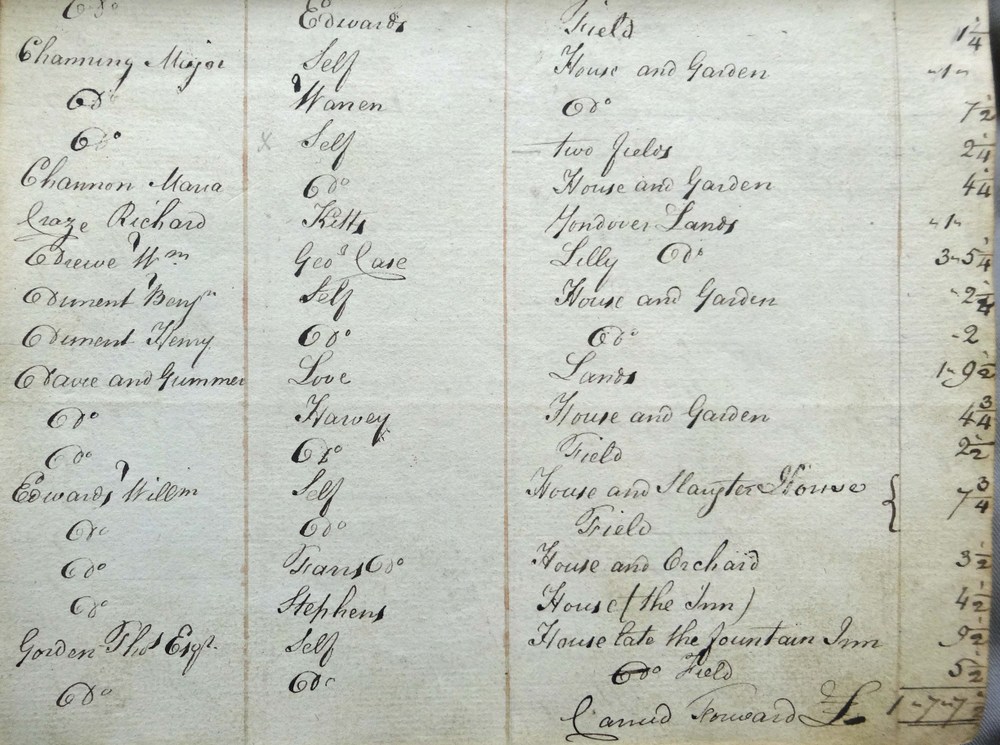 Do Edwards Field 1¼
Channing Major Self House and Garden -1-
Do Warren Do 7½
Do Self two fields 2¼
Channon Maria Do House and Garden 4¼
Craze Richard Kitts Hondover Lands -1-
Drewe Wm Geo: Case Lilly Do 3-5¼
Dument Benjn Self House and Garden -2¼
Dument Henry Do Do -2
Davie and Gummer Love Lands 1-9½
Do Harvey House and Garden 4¾
Do Do Field 2½
Edwards Willm Self House and Slaughter House 7¾
Do Do Field
Do Frans Do House and Orchard 3½
Do Stephens House (the Inn) 4½
Gorden Thos Esqr. Self House late the fountain Inn 9½
Do Do Field 5½
Carried Forward £ 1-7-7